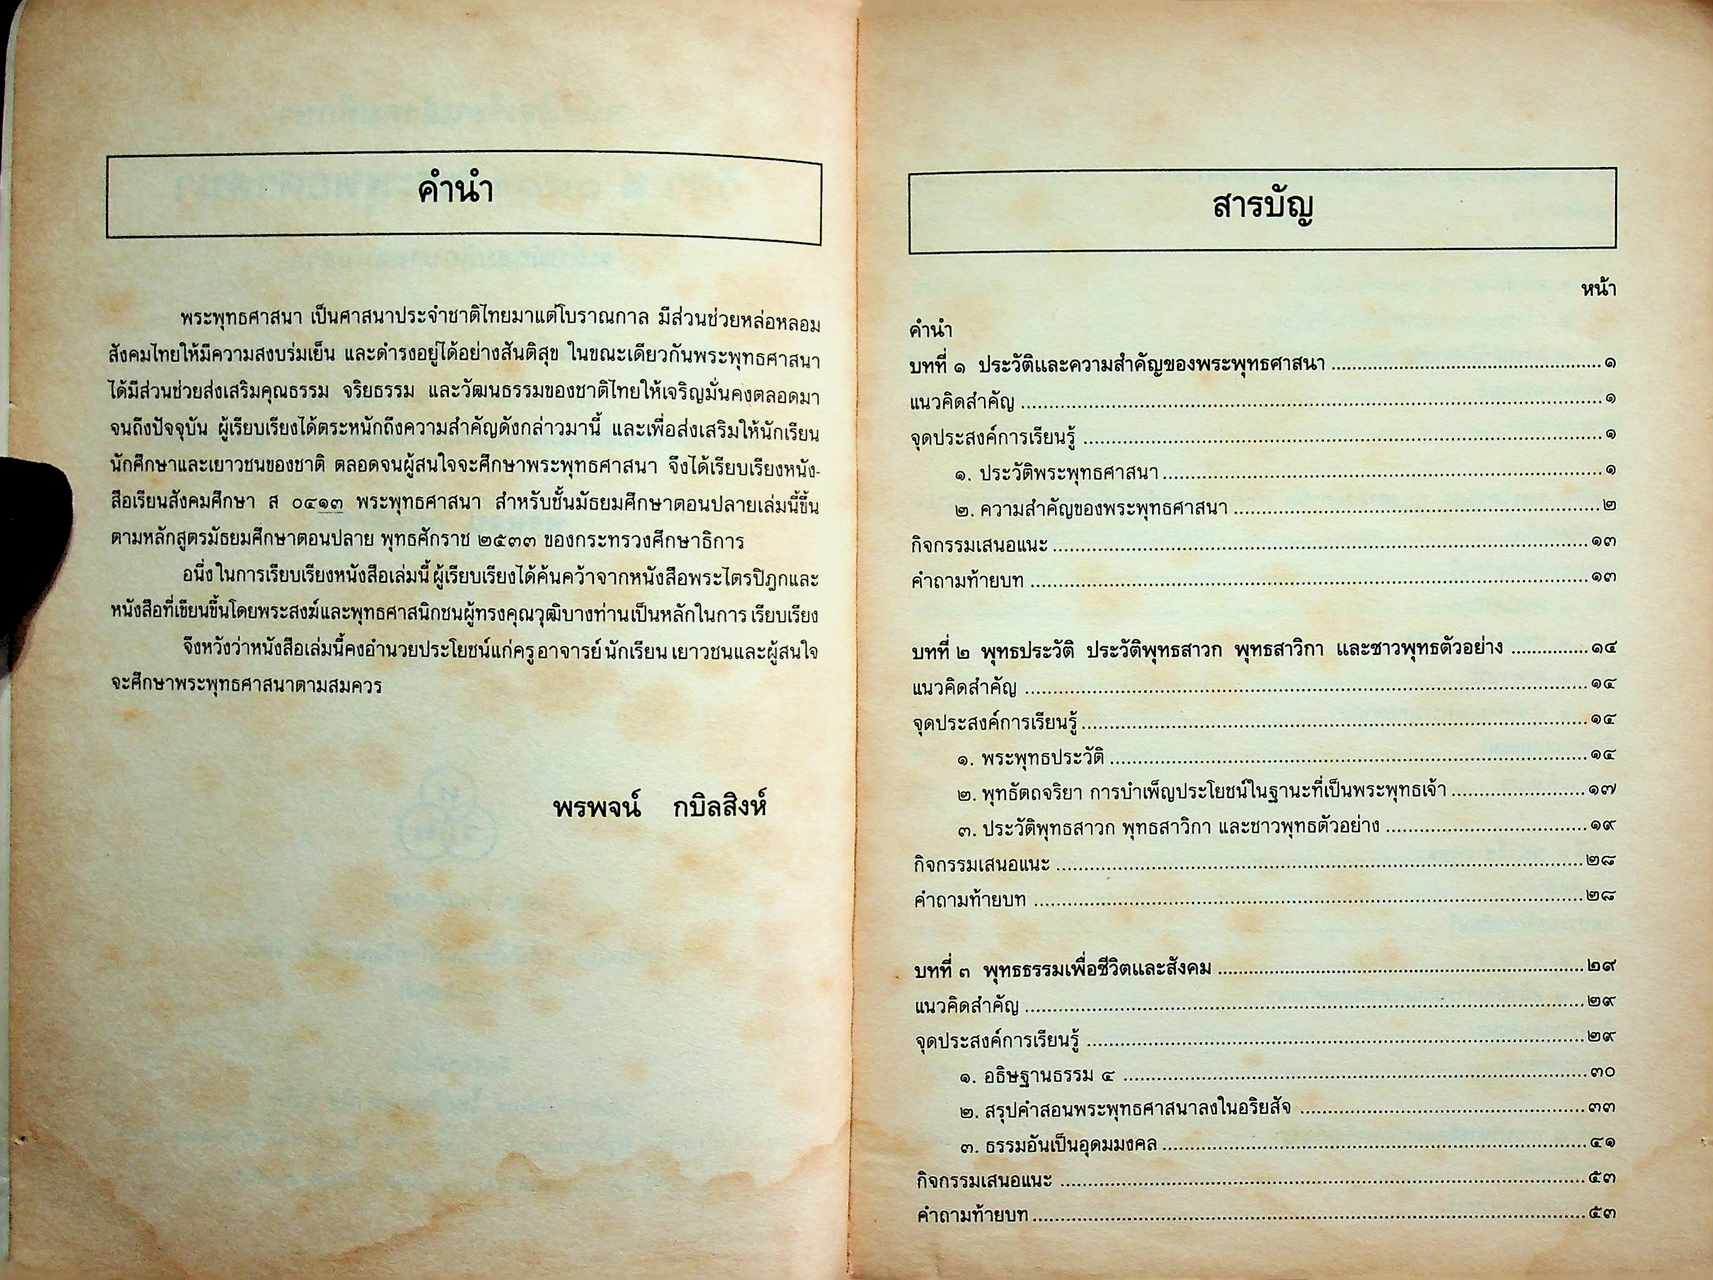 คำนำ
พระพุทธศาสนา เป็นศาสนาประจำชาติไทยมาแต่โบราณกาล มีส่วนช่วยหล่อหลอม
สังคมไทยให้มีความสงบร่มเย็น และดำรงอยู่ได้อย่างสันติสุข ในขณะเดียวกันพระพุทธศาสนา
ได้มีส่วนช่วยส่งเสริมคุณธรรม จริยธรรม และวัฒนธรรมของชาติไทยให้เจริญมั่นคงตลอดมา
จนถึงปัจจุบัน ผู้เรียบเรียงได้ตระหนักถึงความสำคัญดังกล่าวมานี้ และเพื่อส่งเสริมให้นักเรียน
นักศึกษาและเยาวชนของชาติ ตลอดจนผู้สนใจจะศึกษาพระพุทธศาสนา จึงได้เรียบเรียงหนัง-
สือเรียนสังคมศึกษา ส ๐๔๑๓ พระพุทธศาสนา สำหรับชั้นมัธยมศึกษาตอนปลายเล่มนี้ขึ้น
ตามหลักสูตรมัธยมศึกษาตอนปลาย พุทธศักราช ๒๕๓๓ ของกระทรวงศึกษาธิการ
อนึ่ง ในการเรียบเรียงหนังสือเล่มนี้ ผู้เรียบเรียงได้ค้นคว้าจากหนังสือพระไตรปิฎกและ
หนังสือที่เขียนขึ้นโดยพระสงฆ์และพุทธศาสนิกชนผู้ทรงคุณวุฒิบางท่านเป็นหลักในการ เรียบเรียง
จึงหวังว่าหนังสือเล่มนี้คงอำนวยประโยชน์แก่ครู อาจารย์ นักเรียน เยาวชนและผู้สนใจ
จะศึกษาพระพุทธศาสนาตามสมควร
พรพจน์ กบิลสิงห์
สารบัญ
หน้า
คำนำ
บทที่ ๑ ประวัติและความสำคัญของพระพุทธศาสนา ........ ๑
แนวคิดสำคัญ ........ ๑
จุดประสงค์การเรียนรู้ ........ ๑
๑. ประวัติพระพุทธศาสนา ........ ๑
๒. ความสำคัญของพระพุทธศาสนา ........ ๒
กิจกรรมเสนอแนะ ........ ๑๓
คำถามท้ายบท ........ ๑๓
บทที่ ๒ พุทธประวัติ ประวัติพุทธสาวก พุทธสาวิกา และชาวพุทธตัวอย่าง ........ ๑๔
แนวคิดสำคัญ ........ ๑๔
จุดประสงค์การเรียนรู้ ........ ๑๔
๑. พระพุทธประวัติ ........ ๑๔
๒. พุทธัตถจริยา การบำเพ็ญประโยชน์ในฐานะที่เป็นพระพุทธเจ้า ........ ๑๗
๓. ประวัติพุทธสาวก พุทธสาวิกา และชาวพุทธตัวอย่าง ........ ๑๙
กิจกรรมเสนอแนะ ........ ๒๘
คำถามท้ายบท ........ ๒๘
บทที่ ๓ พุทธธรรมเพื่อชีวิตและสังคม ........ ๒๙
แนวคิดสำคัญ ........ ๒๙
จุดประสงค์การเรียนรู้ ........ ๒๙
๑. อธิษฐานธรรม ๔ ........ ๓๐
๒. สรุปคำสอนพระพุทธศาสนาลงในอริยสัจ ........ ๓๓
๓. ธรรมอันเป็นอุดมมงคล ........ ๔๑
กิจกรรมเสนอแนะ ........ ๕๓
คำถามท้ายบท ........ ๕๓